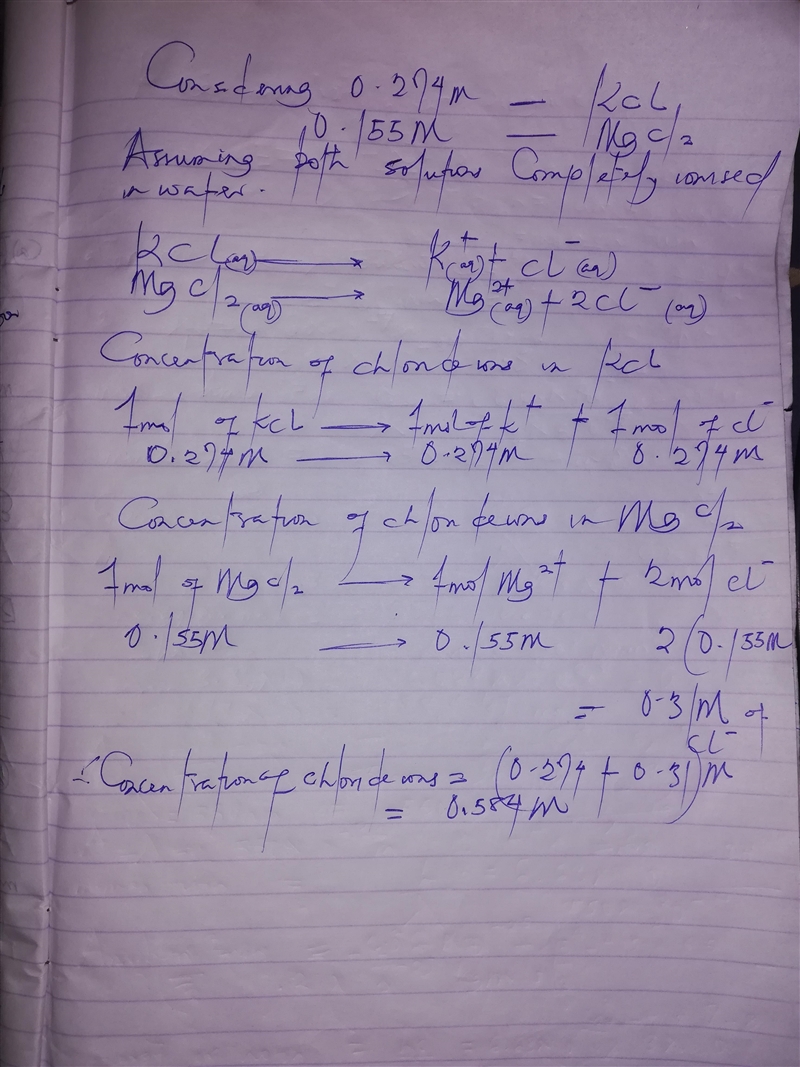 Considering 0.274m — KCl
0.155M — MgCl2
Assuming both solutions Completely ionised
in water.
KCl(aq) → K+(aq) + Cl-(aq)
MgCl2(aq) → Mg2+(aq) + 2Cl-(aq)
Concentration of chloride ions in KCl
1mol of KCl → 1mol of K+ + 1mol of Cl-
0.274M → 0.274M 0.274M
Concentration of chloride ions in MgCl2
1mol of MgCl2 → 1mol Mg2+ + 2mol Cl-
0.155M → 0.155M 2(0.155M
= 0.31M of
Cl-
∴ Concentration of chloride ions = (0.274 + 0.31)M
= 0.584M